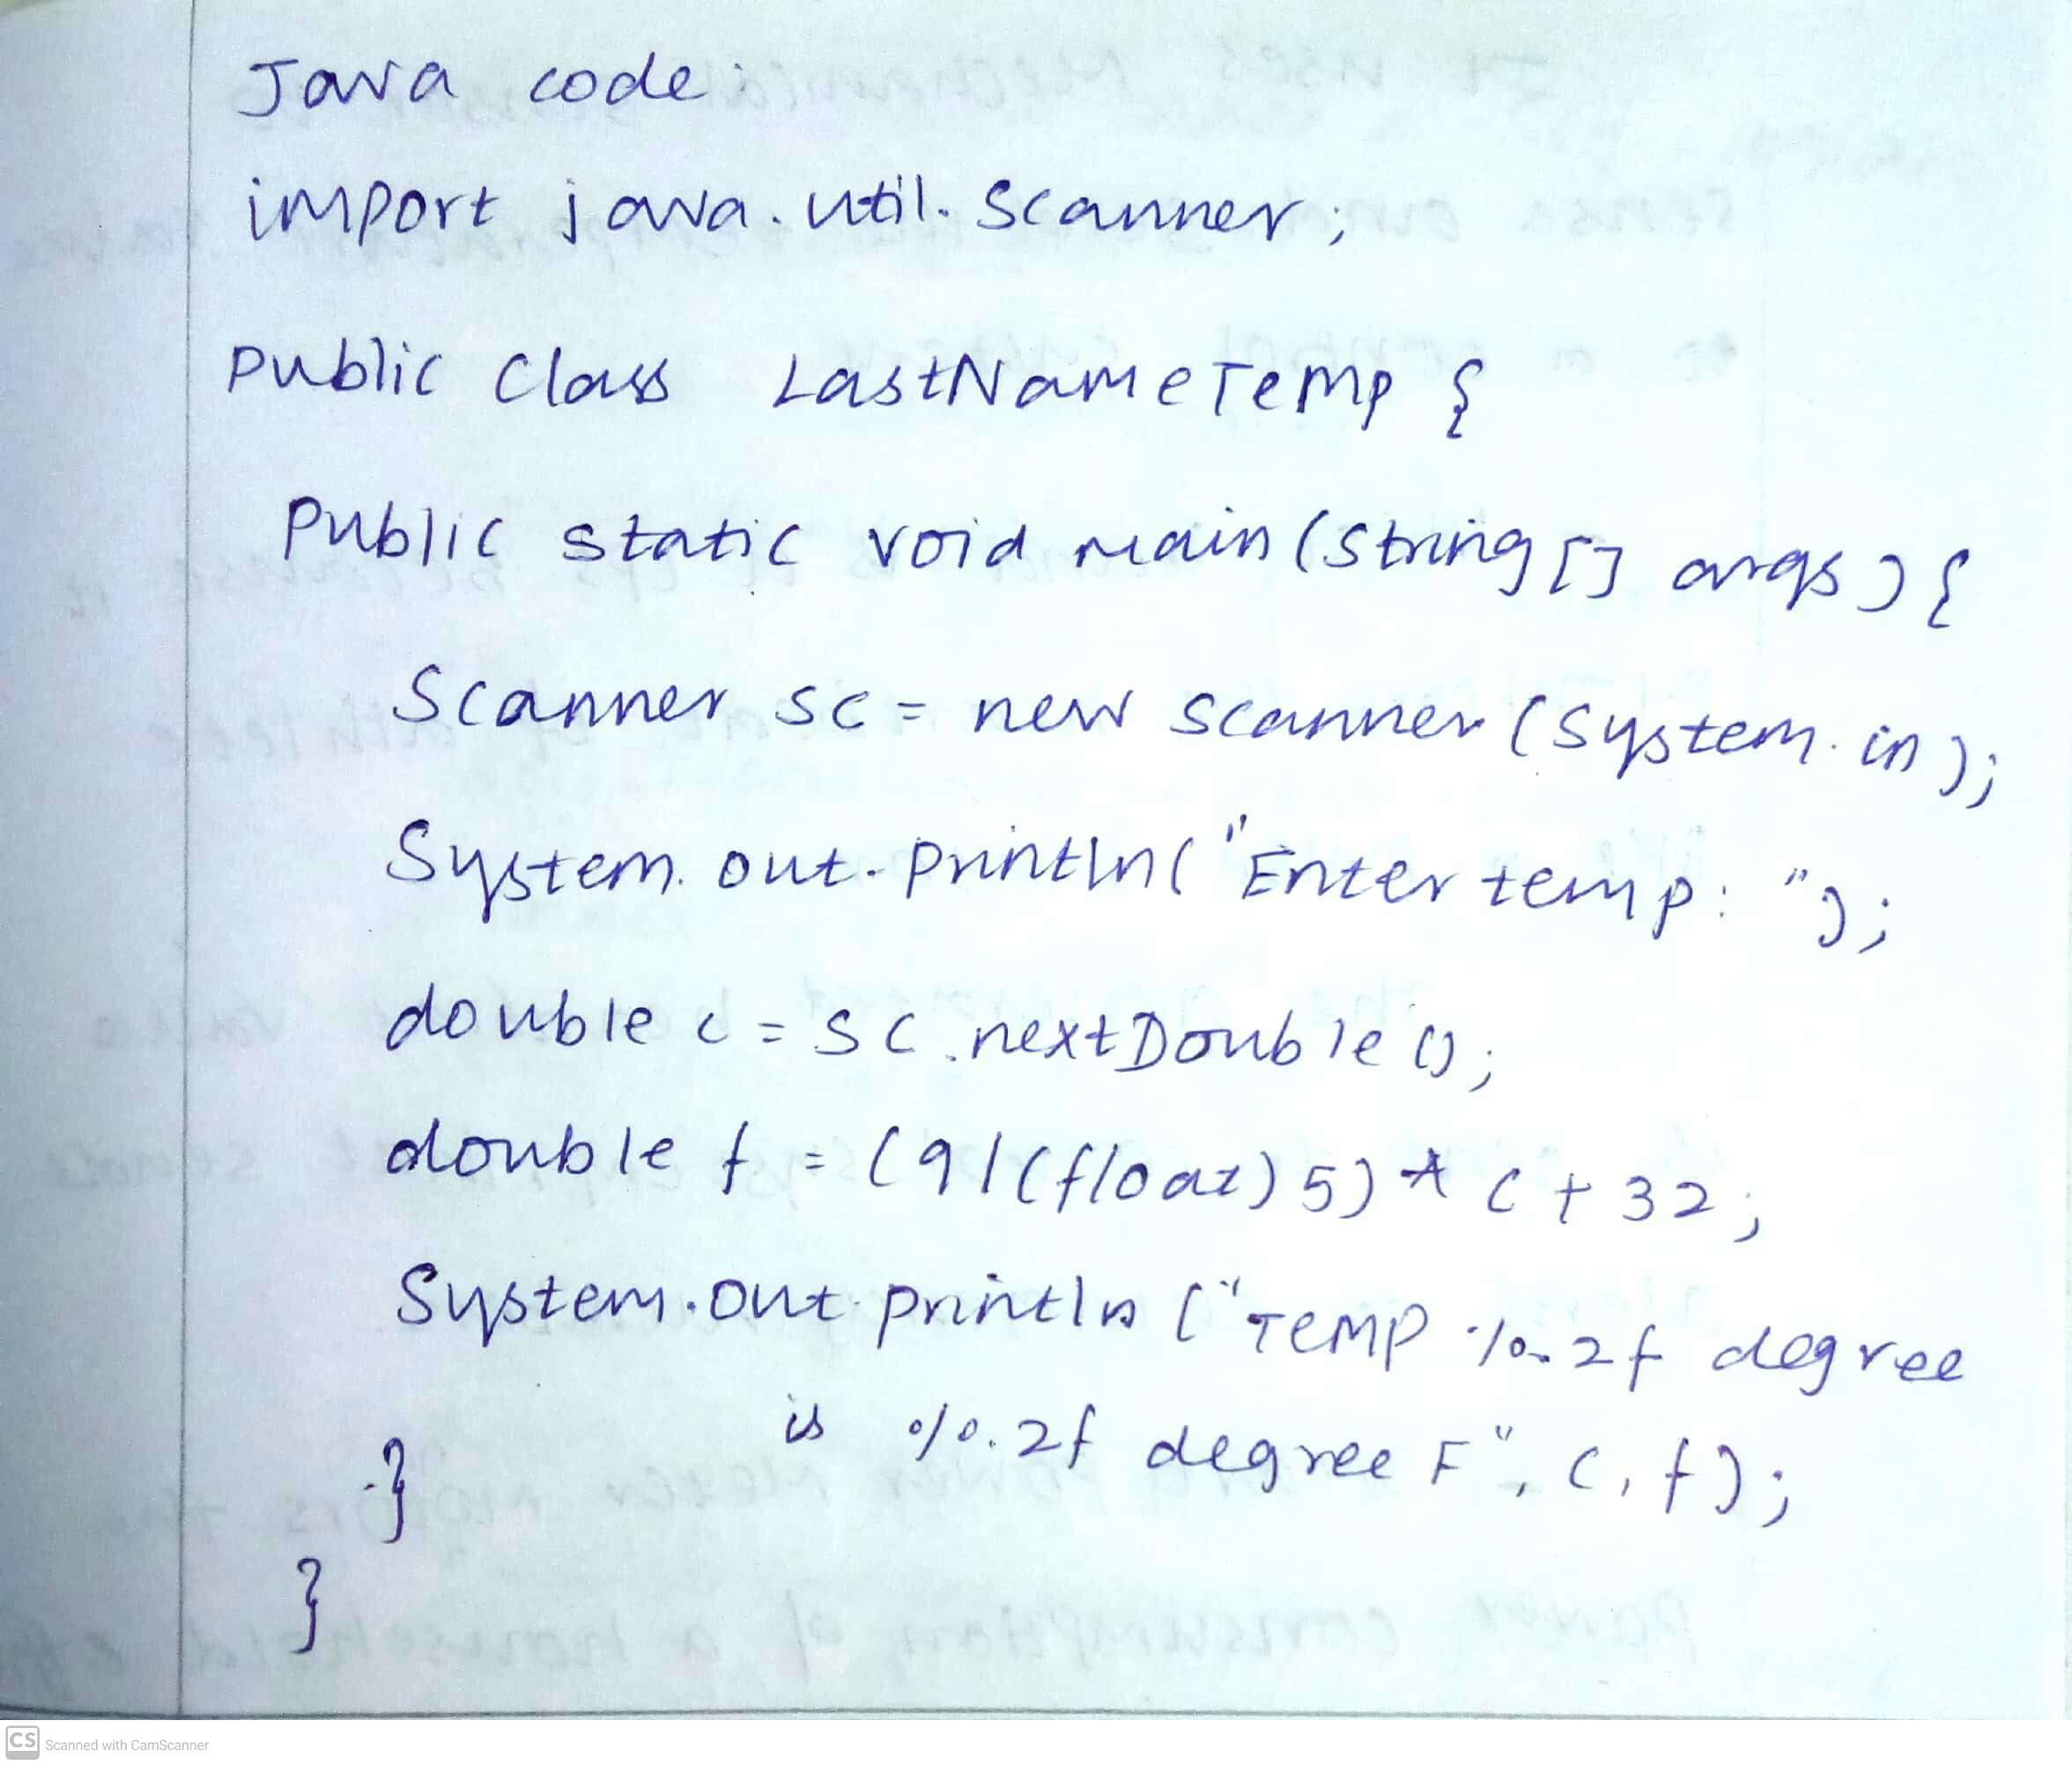 Java code:
import java.util.Scanner;
public class LastNameTemp {
public static void main(String[] args) {
Scanner sc = new Scanner(System.in);
System.out.println("Enter temp: ");
double c = sc.nextDouble();
double f = (9/(float)5)*c+32;
System.out.println("Temp %.2f degree
is %.2f degree F", c, f);
}
}
CS Scanned with CamScanner